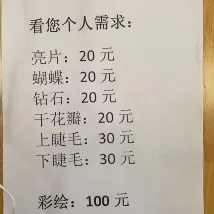 看您个人需求：
亮片：20 元
蝴蝶：20 元
钻石：20 元
干花瓣：20 元
上睫毛：30 元
下睫毛：30 元
彩绘：100 元